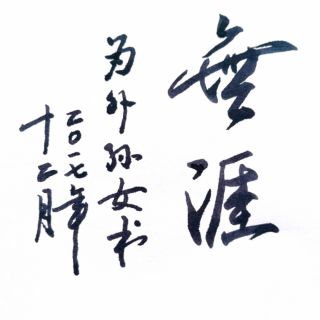 無涯
为外孙女书
二〇一七年
十二月